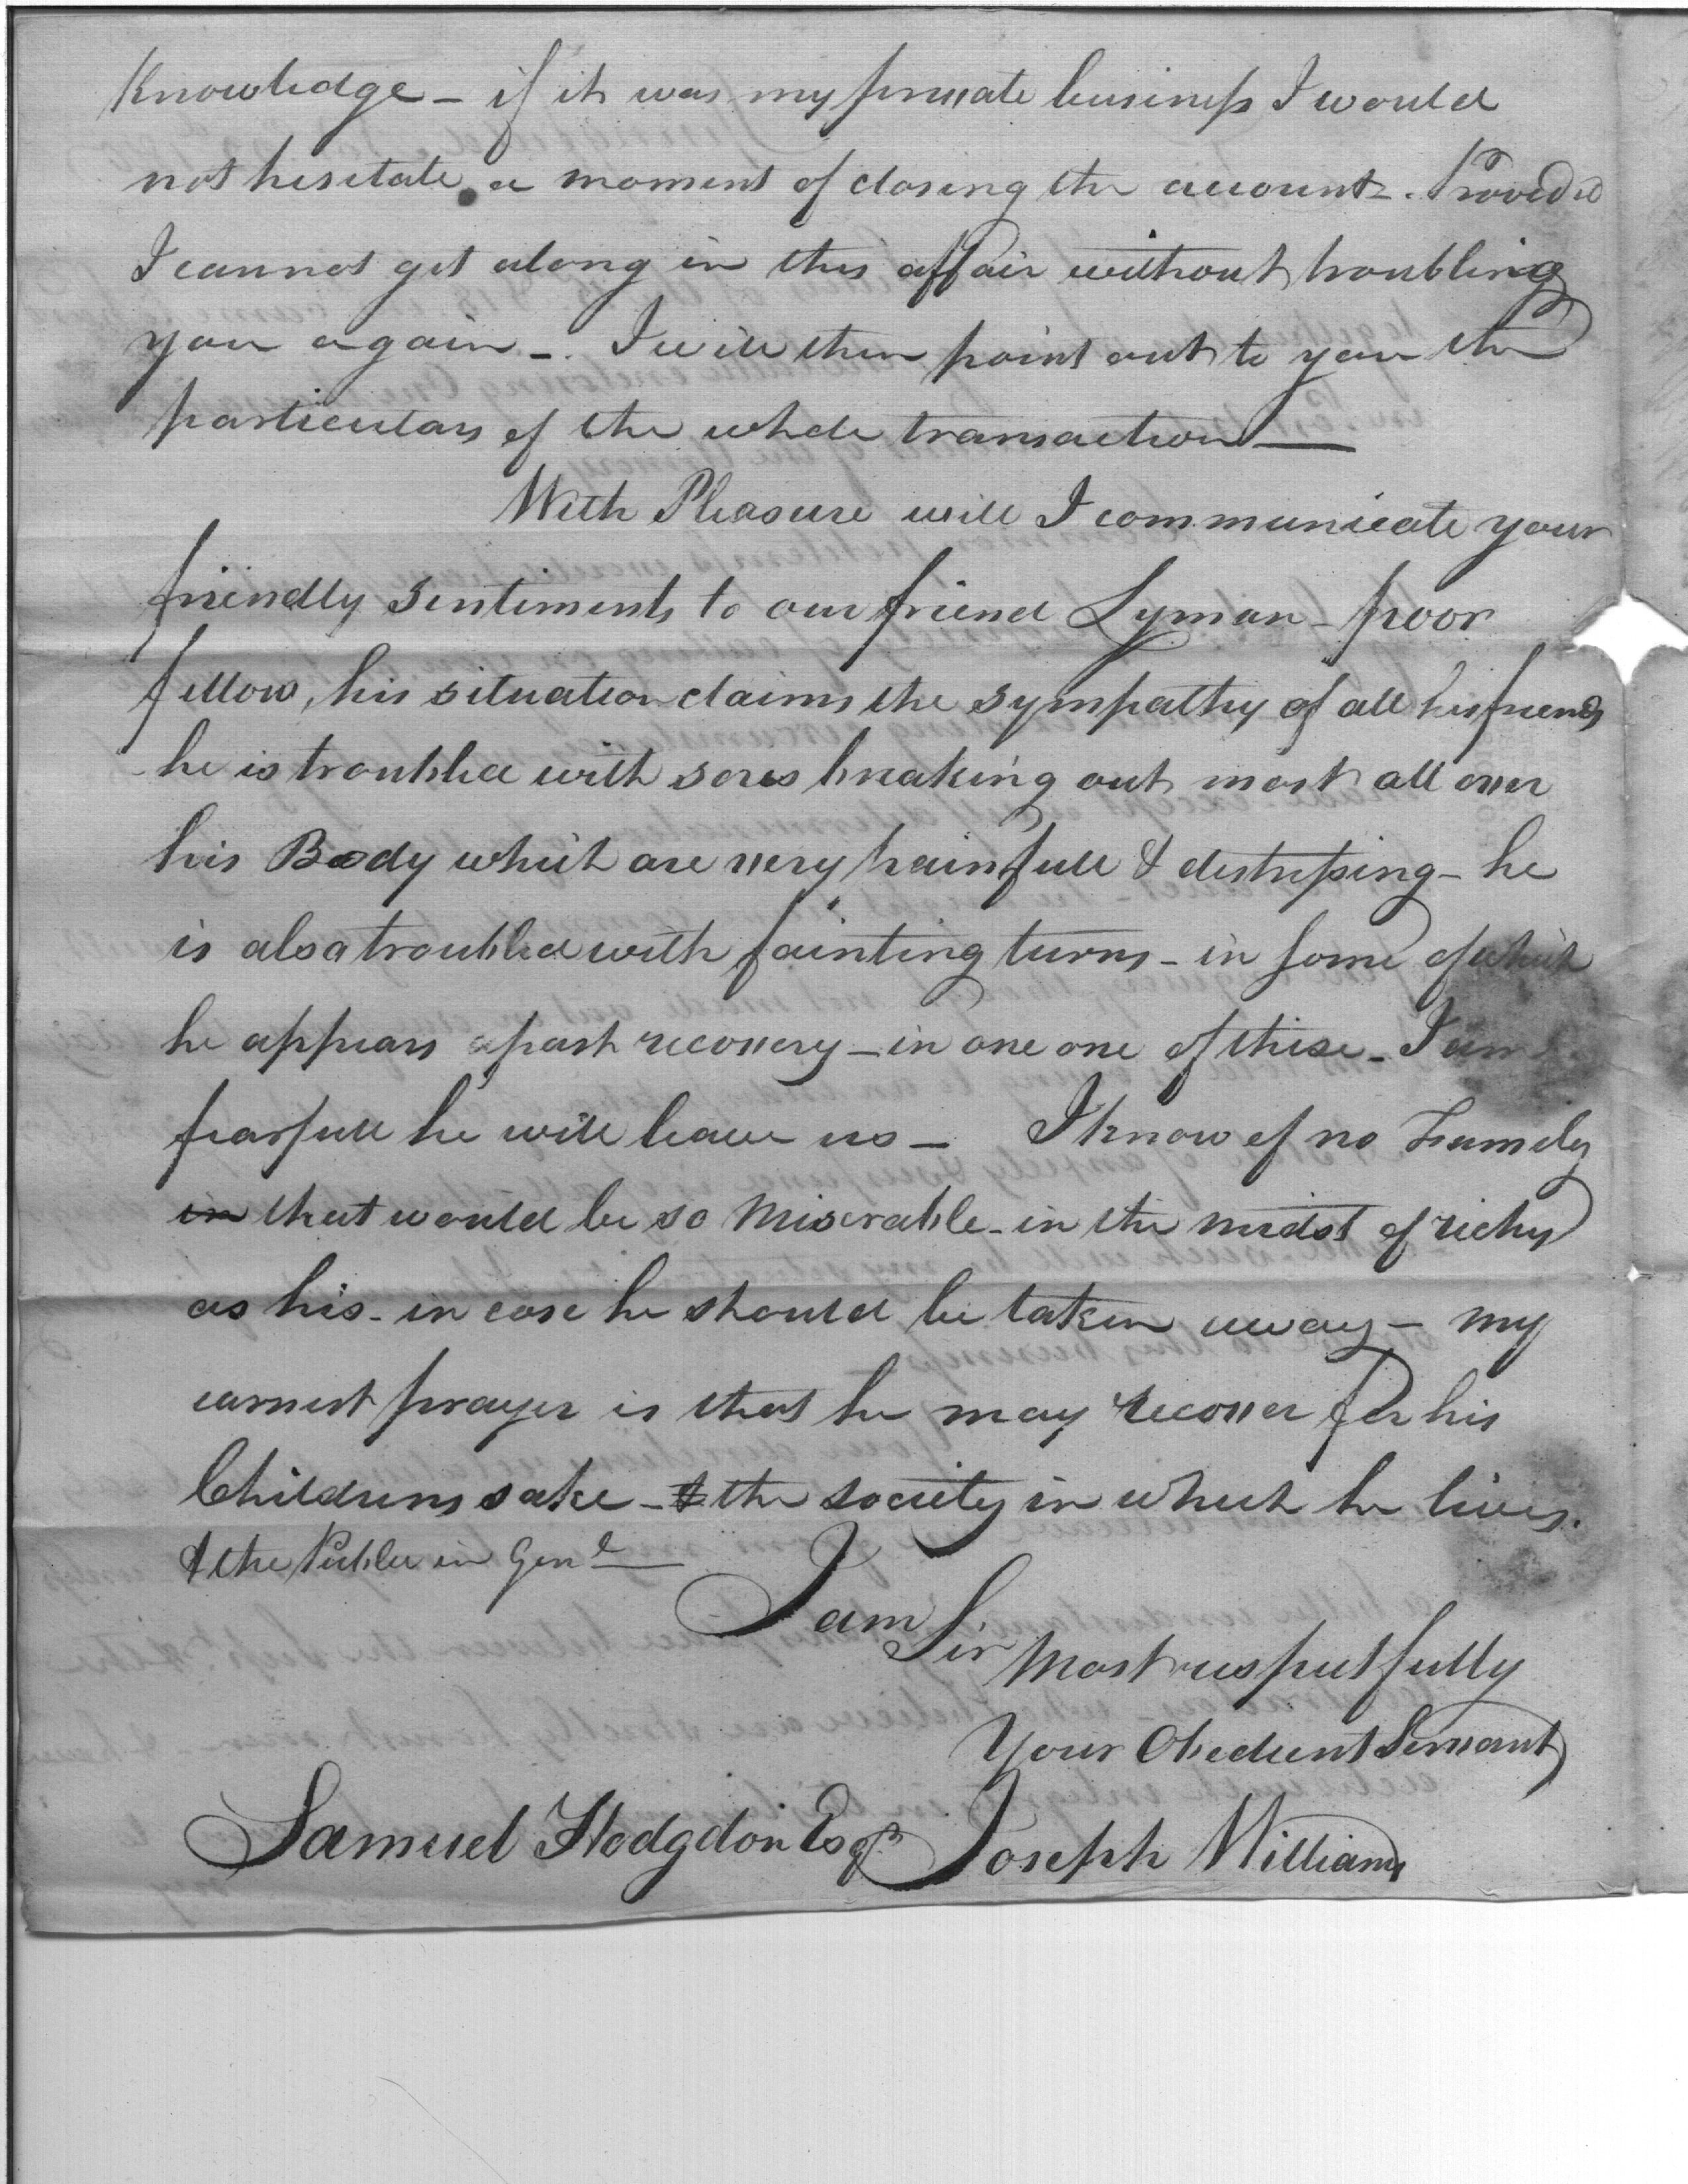 Knowledge – if it was my private business I would
not hesitate a moment of closing the account –. Provided
I cannot get along in this affair without troubling
you again –. I will then point out to you the
particulars of the whole transaction —
With Pleasure will I communicate your
friendly sentiments to our friend Lyman – poor
fellow, his situation claims the sympathy of all his friends
he is troubled with sores breaking out most all over
his Body which are very painfull & distressing – he
is also troubled with fainting turns – in some of which
he appears past recovery – in one one of these – I am
fearfull he will leave us – I know of no Family
in that would be so Miserable – in the midst of riches
as his – in case he should be taken away – my
earnest prayer is that he may recover for his
Childrens sake – & the society in which he lives.
& the Public in Genl —
I am Sir
Most respectfully
Your Obedient Servant
Samuel Hodgdon Esqr Joseph Williams